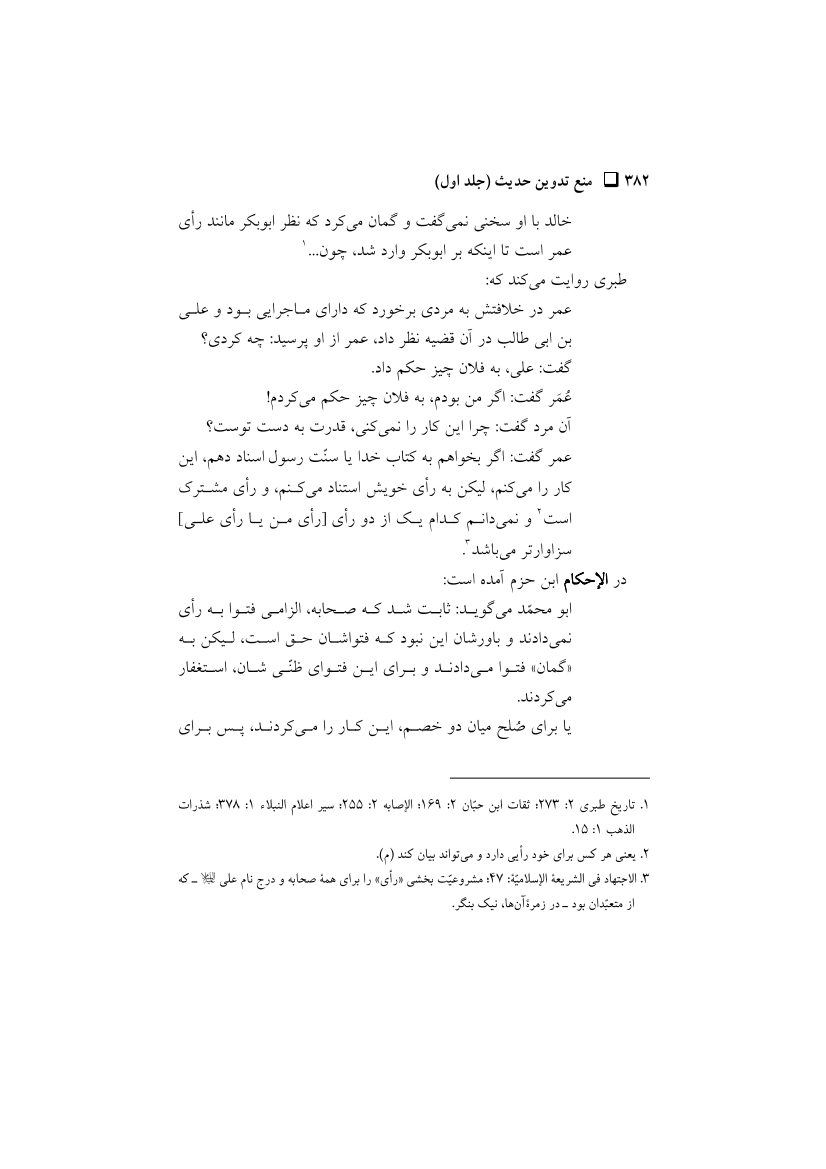 ۳۸۲ ❑ منع تدوین حدیث (جلد اول)
خالد با او سخنی نمی‌گفت و گمان می‌کرد که نظر ابوبکر مانند رأی
عمر است تا اینکه بر ابوبکر وارد شد، چون...۱
طبری روایت می‌کند که:
عمر در خلافتش به مردی برخورد که دارای مـاجرایی بـود و علـی
بن ابی طالب در آن قضیه نظر داد، عمر از او پرسید: چه کردی؟
گفت: علی، به فلان چیز حکم داد.
عُمَر گفت: اگر من بودم، به فلان چیز حکم می‌کردم!
آن مرد گفت: چرا این کار را نمی‌کنی، قدرت به دست توست؟
عمر گفت: اگر بخواهم به کتاب خدا یا سنّت رسول اسناد دهم، این
کار را می‌کنم، لیکن به رأی خویش استناد می‌کـنم، و رأی مشـترک
است۲ و نمی‌دانـم کـدام یـک از دو رأی [رأی مـن یـا رأی علـی]
سزاوارتر می‌باشد.۳
در الإحکام ابن حزم آمده است:
ابو محمّد می‌گویـد: ثابـت شـد کـه صـحابه، الزامـی فتـوا بـه رأی
نمی‌دادند و باورشان این نبود کـه فتواشـان حـق اسـت، لـیکن بـه
«گمان» فتـوا مـی‌دادنـد و بـرای ایـن فتـوای ظنّـی شـان، اسـتغفار
می‌کردند.
یا برای صُلح میان دو خصـم، ایـن کـار را مـی‌کردنـد، پـس بـرای
۱. تاریخ طبری ۲: ۲۷۳؛ ثقات ابن حبّان ۲: ۱۶۹؛ الإصابه ۲: ۲۵۵؛ سیر اعلام النبلاء ۱: ۳۷۸؛ شذرات
الذهب ۱: ۱۵.
۲. یعنی هر کس برای خود رأیی دارد و می‌تواند بیان کند (م).
۳. الاجتهاد فی الشریعة الإسلامیّة: ۴۷؛ مشروعیّت بخشی «رأی» را برای همهٔ صحابه و درج نام علی ـ که
از متعبّدان بود ـ در زمرهٔ آن‌ها، نیک بنگر.